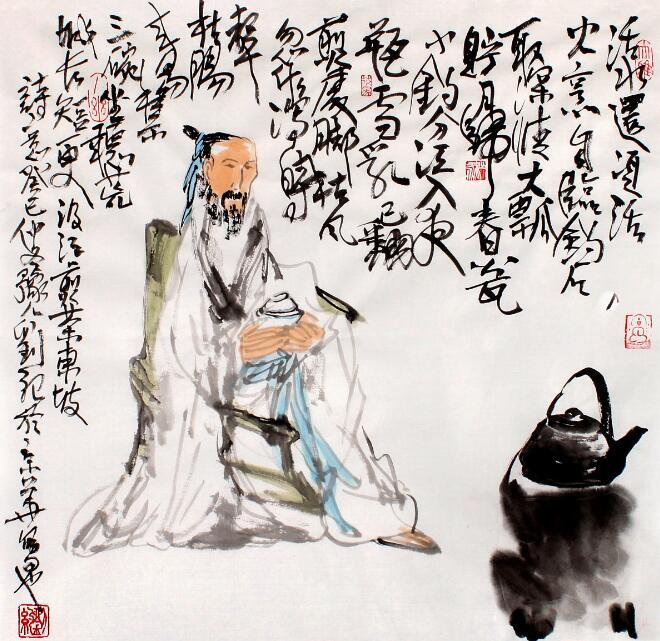 活水還須活
火烹自臨釣石
取深清大瓢
貯月歸春甕
小杓分江入夜
瓶雪乳已翻
煎處腳松風
忽作瀉時
聲
枯腸
未易禁
三碗坐聽荒
城長短更汲江煎茶東坡
詩意癸巳豫人劉於京華